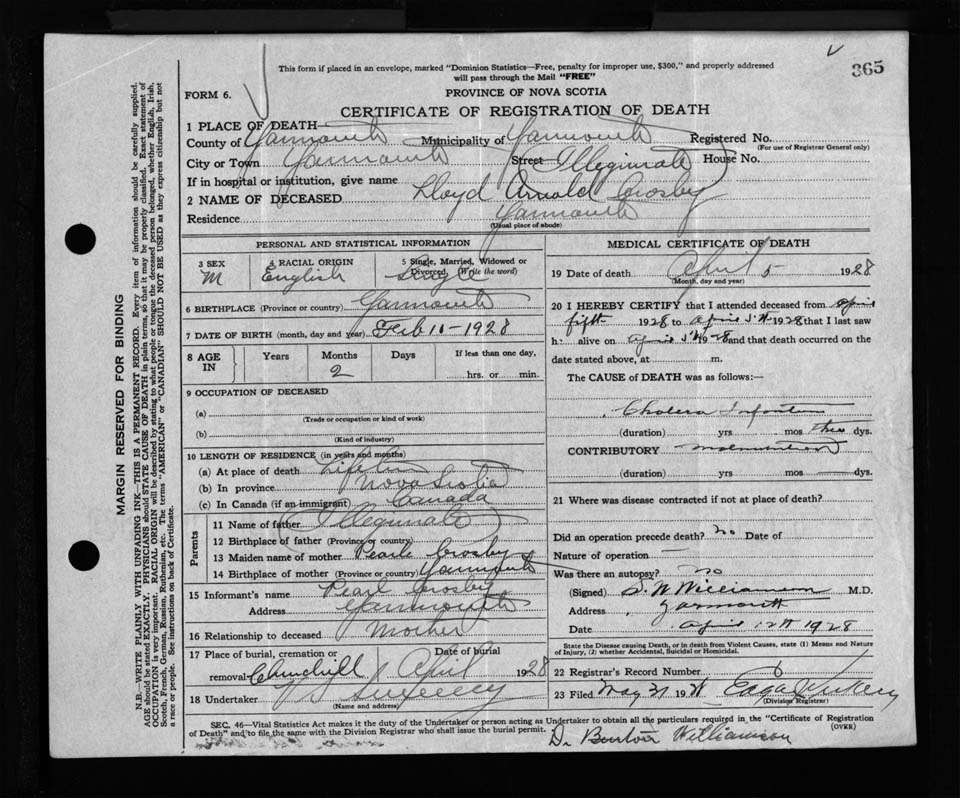 365
This form if placed in an envelope, marked "Dominion Statistics—Free, penalty for improper use, $300," and properly addressed
will pass through the Mail "FREE"
FORM 6.
PROVINCE OF NOVA SCOTIA
CERTIFICATE OF REGISTRATION OF DEATH
1 PLACE OF DEATH—
County of Yarmouth Municipality of Yarmouth Registered No.
(For use of Registrar General only)
City or Town Yarmouth Street Illegimate House No.
If in hospital or institution, give name
2 NAME OF DECEASED Lloyd Arnold Crosby
Residence Yarmouth
(Usual place of abode)
PERSONAL AND STATISTICAL INFORMATION
3 SEX 4 RACIAL ORIGIN 5 Single, Married, Widowed or
Divorced, (Write the word)
M English Single
6 BIRTHPLACE (Province or country) Yarmouth
7 DATE OF BIRTH (month, day and year) Feb 10-1928
8 AGE IN Years Months Days If less than one day,
2 hrs. or min.
9 OCCUPATION OF DECEASED
(a)
(Trade or occupation or kind of work)
(b)
(Kind of industry)
10 LENGTH OF RESIDENCE (in years and months)
(a) At place of death
(b) In province Nova Scotia
(c) In Canada (if an immigrant) Canada
Parents
11 Name of father Illegimate
12 Birthplace of father (Province or country)
13 Maiden name of mother Pearl Crosby
14 Birthplace of mother (Province or country) Yarmouth
15 Informant's name Pearl Crosby
Address Yarmouth
16 Relationship to deceased Mother
17 Place of burial, cremation or Date of burial
removal Churchill April 1928
18 Undertaker V S Sweeney
(Name and address)
MEDICAL CERTIFICATE OF DEATH
19 Date of death April 5 1928
(Month, day and year)
20 I HEREBY CERTIFY that I attended deceased from April
fifth 1928 to April 5th 1928 that I last saw
h alive on April 5th 1928 and that death occurred on the
date stated above, at m.
The CAUSE of DEATH was as follows:—
Cholera Infantum
(duration) yrs mos three dys.
CONTRIBUTORY Malnutrition
(duration) yrs mos dys.
21 Where was disease contracted if not at place of death?
Did an operation precede death? no Date of
Nature of operation —
Was there an autopsy? no
(Signed) S. W Williamson M.D.
Address Yarmouth
Date April 12th 1928
State the Disease causing Death, or in death from Violent Causes, state (1) Means and Nature
of Injury, (2) whether Accidental, Suicidal or Homicidal.
22 Registrar's Record Number 6
23 Filed May 31 19
(Division Registrar)
SEC. 46—Vital Statistics Act makes it the duty of the Undertaker or person acting as Undertaker to obtain all the particulars required in the "Certificate of Registration
of Death" and to file the same with the Division Registrar who shall issue the burial permit. (OVER)
Dr Williamson
MARGIN RESERVED FOR BINDING
N.B.—WRITE PLAINLY WITH UNFADING INK—THIS IS A PERMANENT RECORD. Every item of information should be carefully supplied.
AGE should be stated EXACTLY. PHYSICIANS should STATE CAUSE OF DEATH in plain terms, so that it may be properly classified. Exact statement of
OCCUPATION is very important. RACIAL ORIGIN will be described by stating to what people or tongue the deceased person belonged, whether English, Irish,
Scotch, French, German, Russian, Ruthenian, etc. The terms "AMERICAN" or "CANADIAN" SHOULD NOT BE USED as they express citizenship but not
a race or people. See instructions on back of Certificate.